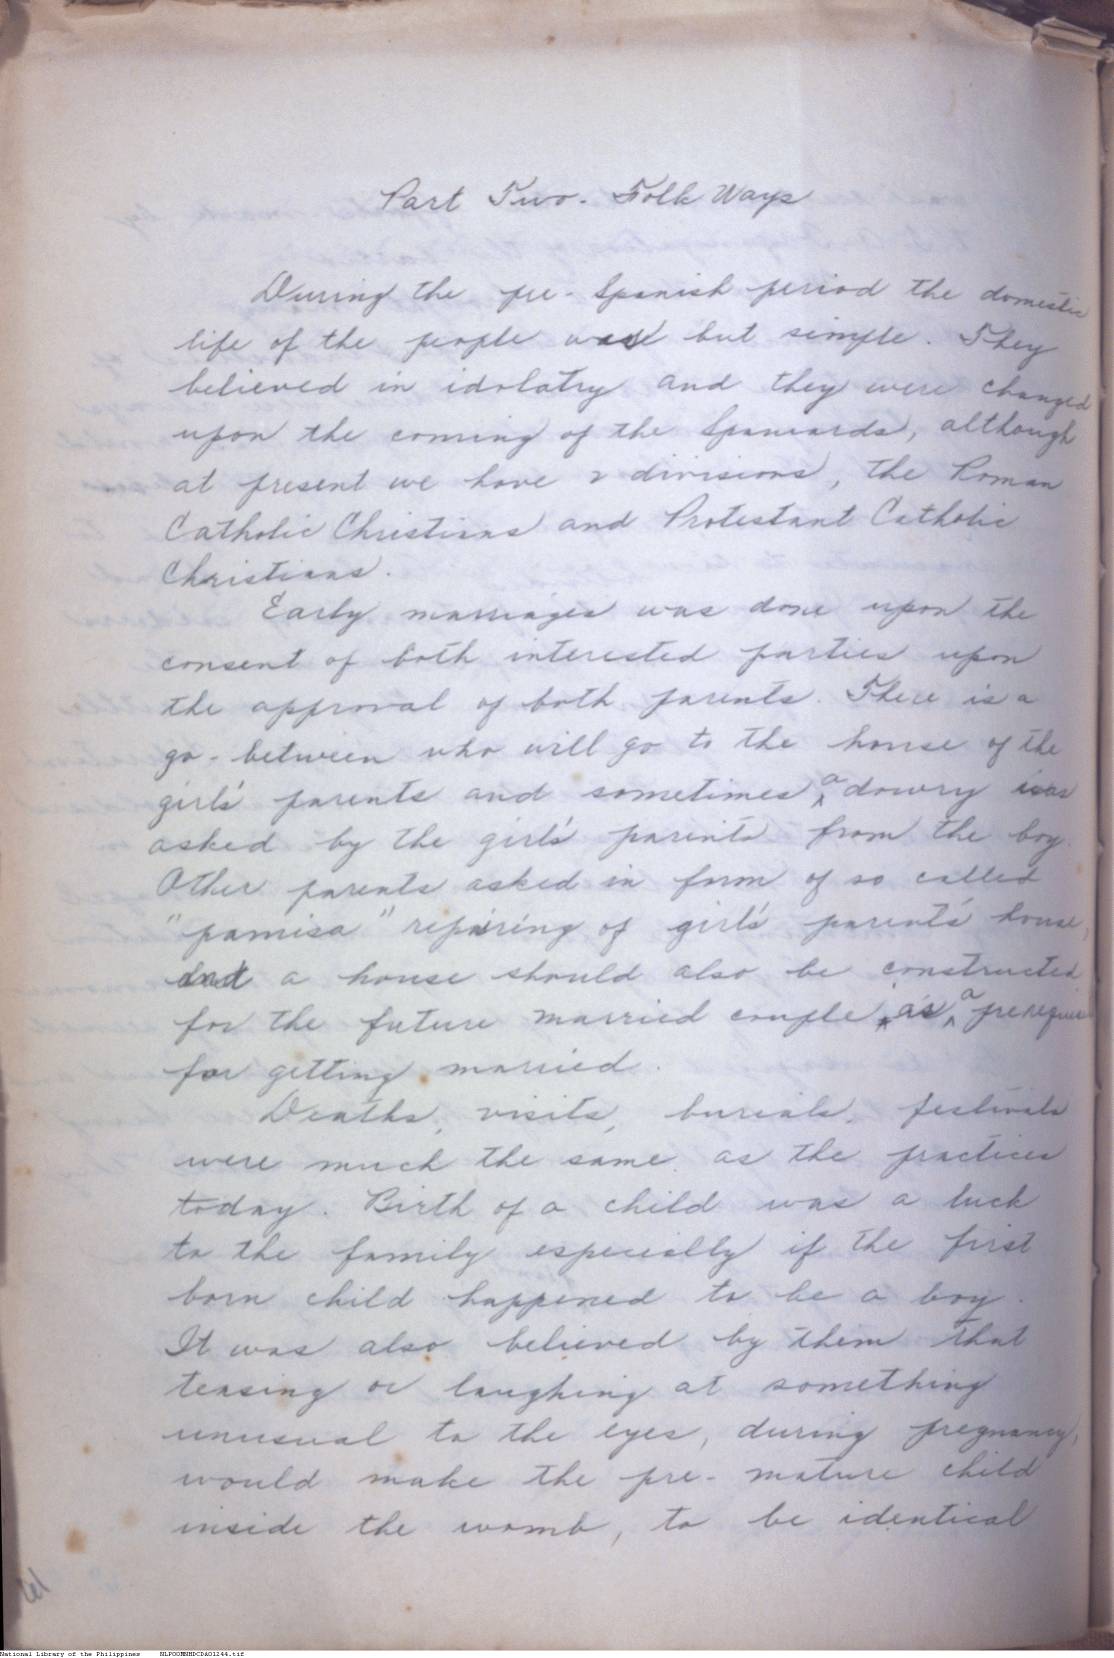 Part Two. Folk Ways
During the pre-Spanish period the domestic
life of the people was but simple. They
believed in idolatry and they were changed
upon the coming of the Spaniards, although
at present we have 2 divisions, the Roman
Catholic Christians and Protestant Catholic
Christians.
Early marriages was done upon the
consent of both interested parties upon
the approval of both parents. There is a
go-between who will go to the house of the
girl's parents and sometimes a dowry was
asked by the girl's parents from the boy.
Other parents asked in form of so called
"pamisa" repairing of girl's parent's house,
and a house should also be constructed
for the future married couple as a
for getting married.
Deaths, visits, burials, festivals
were much the same as the practices
today. Birth of a child was a luck
to the family especially if the first
born child happened to be a boy.
It was also believed by them that
teasing or laughing at something
unusual to the eyes, during pregnancy,
would make the pre-mature child
inside the womb, to be identical
National Library of the Philippines NLPOOMNHDCDA01244.tif